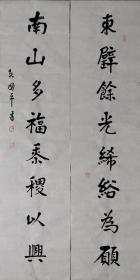 東壁餘光絺綌為願
南山多福黍稷以興